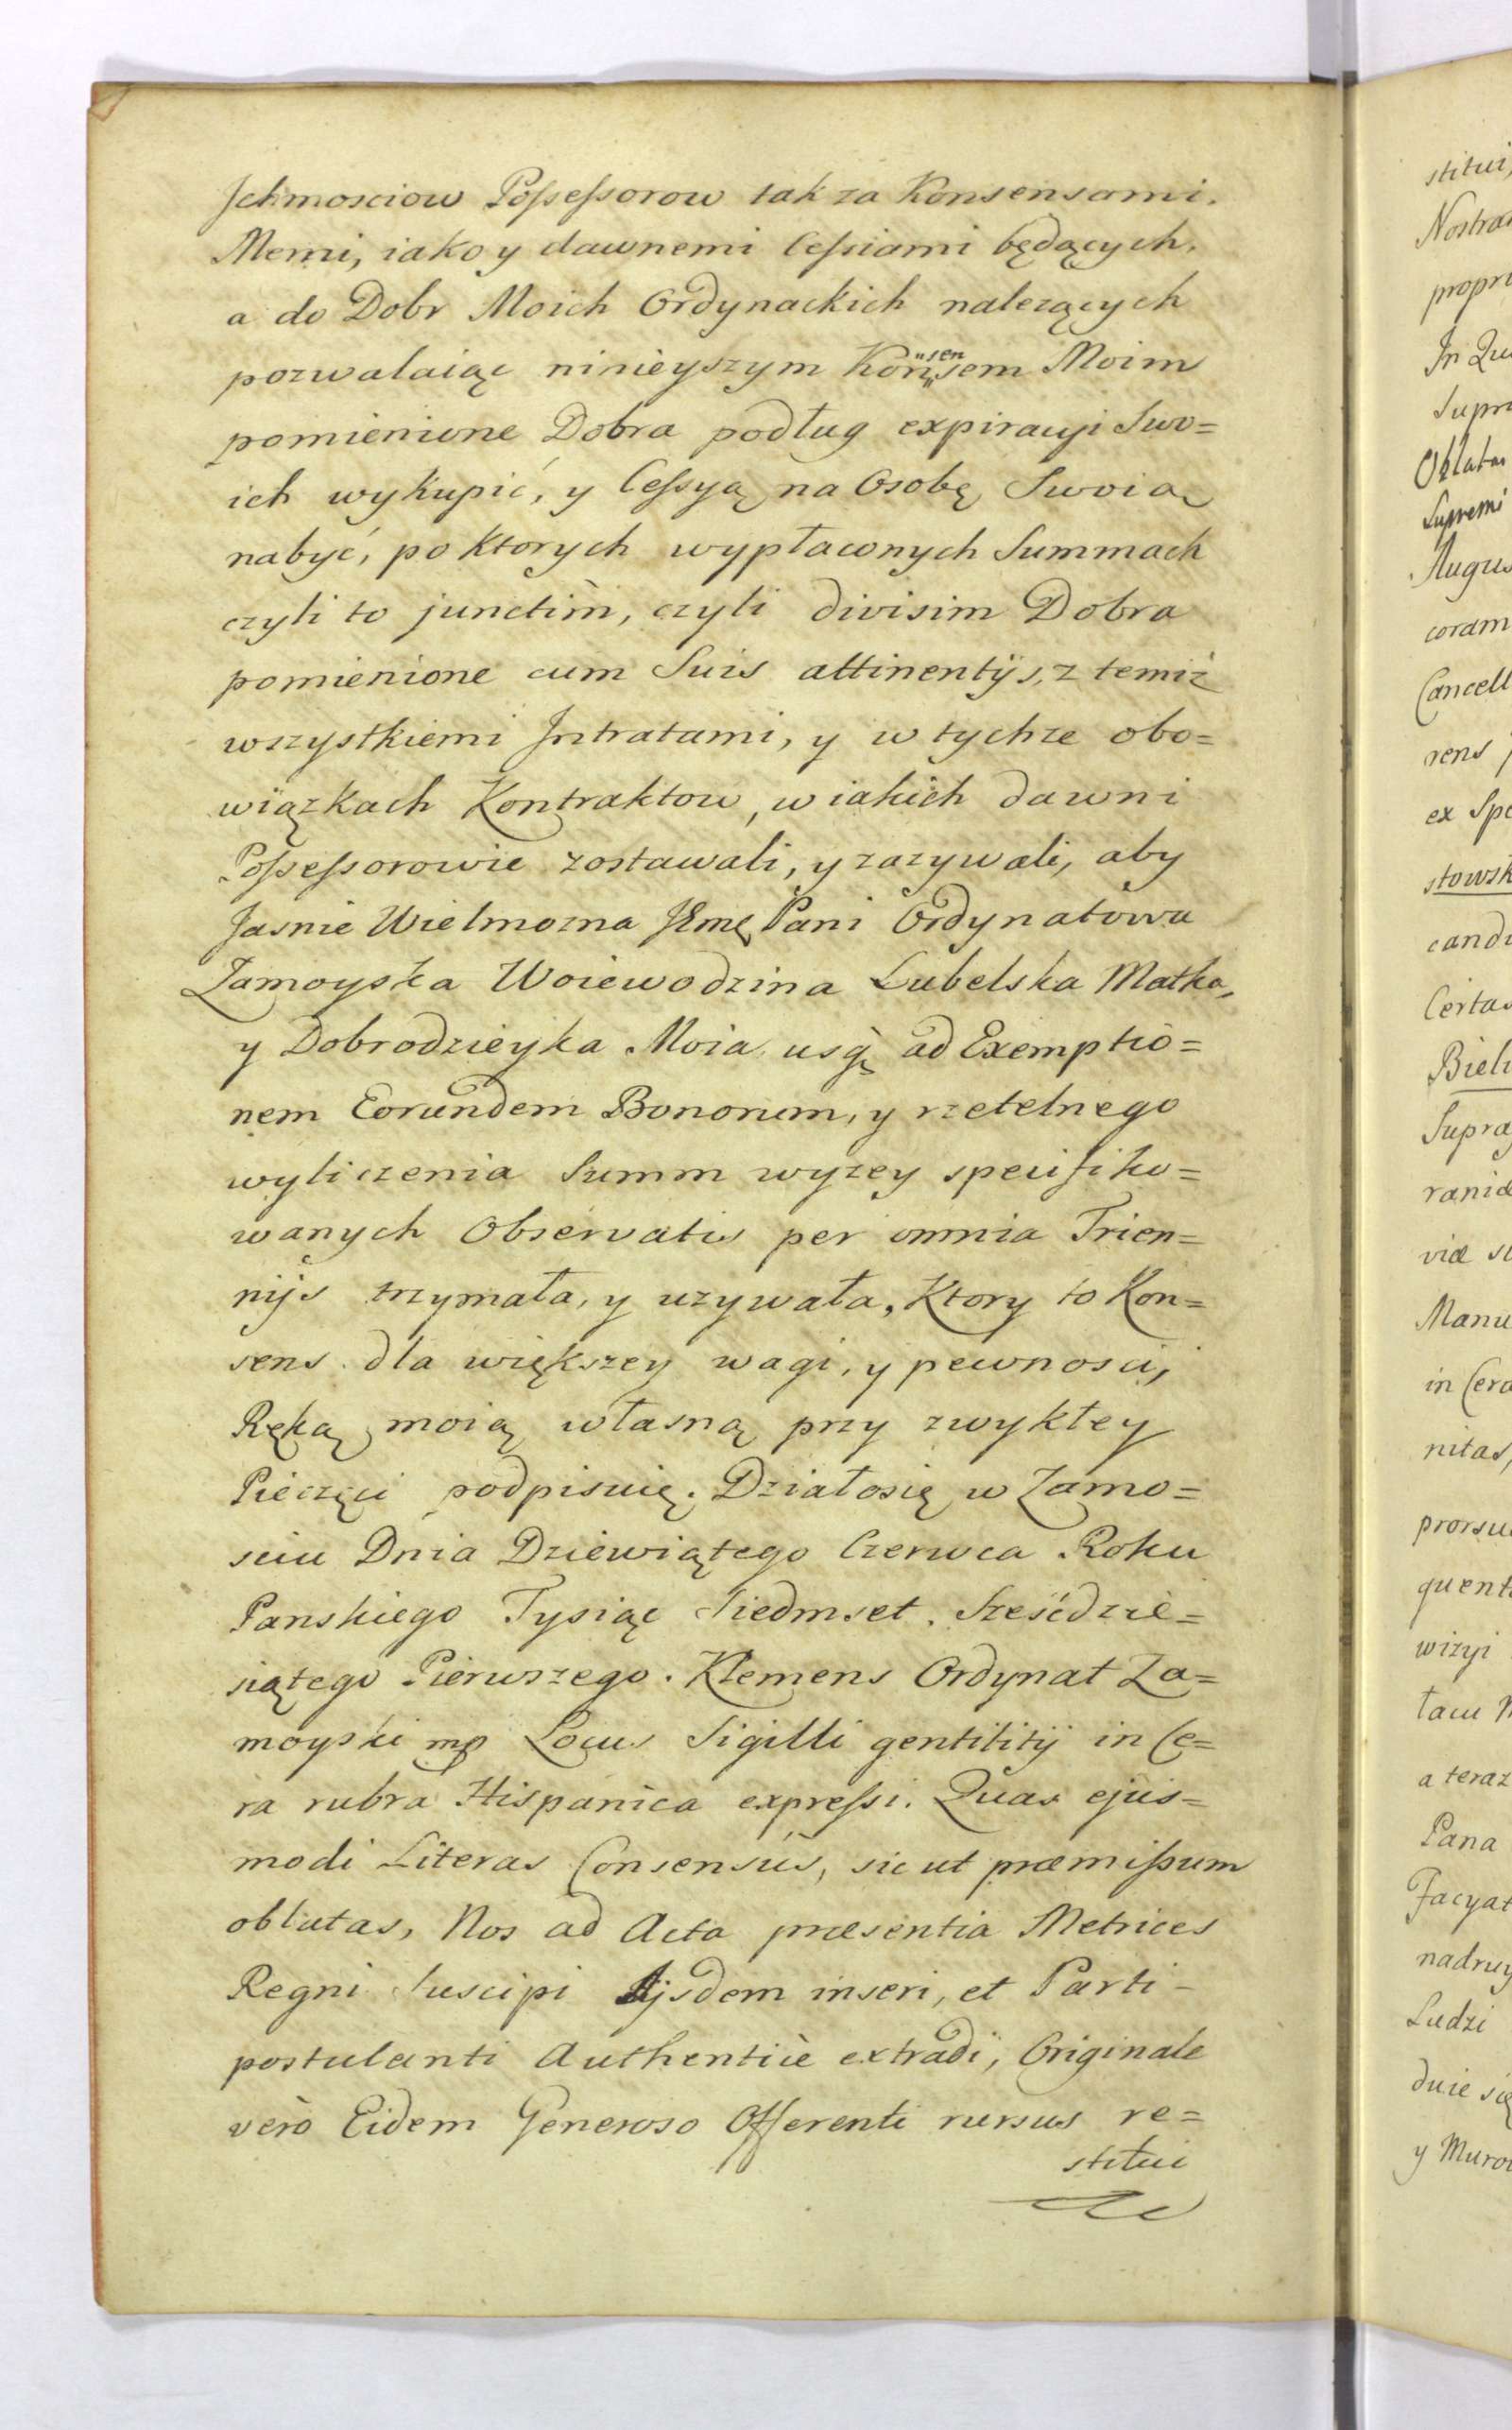 Jchmosciow Possessorow tak za Konsensami
Memi, iako y dawnemi Cessiami będących,
a do Dobr Moich Ordynackich nalezących
pozwalaiąc ninieyszym Konsensem Moim
pomienione Dobra podług expiracyi Swo=
ich wykupić, y Cessyą na Osobę Swoią
nabyć, po ktorych wypłaconych Summach
czyli to junctim, czyli divisim Dobra
pomienione cum Suis attinentijs, z temiż
wszystkiemi Jntratami, y w tychze obo=
wiązkach Kontraktow, w iakich dawni
Possessorowie zostawali, y zazywali, aby
Jasnie Wielmozna JEmę Pani Ordynatowa
Zamoyska Woiewodzina Lubelska Matka,
y Dobrodzieyka Moia usq̀ ad Exemptio=
nem Eorundem Bonorum, y rzetelnego
wyliczenia Summ wyzey specifiko=
wanych Observatis per omnia Trien=
nijs trzymała, y uzywała, Ktory to Kon=
sens dla większey wagi, y pewnosci,
Ręką moią własną przy zwykłey
Pieczęci podpisuię. Działosię w Zamo=
sciu Dnia Dziewiątego Czerwca Roku
Panskiego Tysiąc Siedmset Sześćdzie=
siątego Pierwszego. Klemens Ordynat Za=
moyski mp Locus Sigilli gentilitij in Ce=
ra rubra Hispanica expressi. Quas ejus=
modi Literas Consensûs, sic ut præmissum
oblatas, Nos ad Acta præsentia Metrices
Regni Suscipi Ijsdem inseri, et Parti
postulanti Authenticè extradi, Originale
verò Eidem Generoso Offerenti rursus re=
stitui
stitui,
propri
coram
Cancell
rens
ex Spe
stowsk
Certas
Manu
in Cera
nitas,
wizyi
a teraz
Pana
Ludzi
duie się